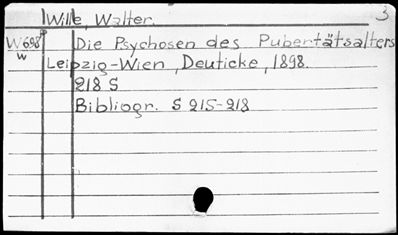 Wille, Walter. 3
W698 Die Psychosen des Pubertätsalters
w Leipzig-Wien, Deuticke, 1898.
218 S
Bibliogr. S 215-218